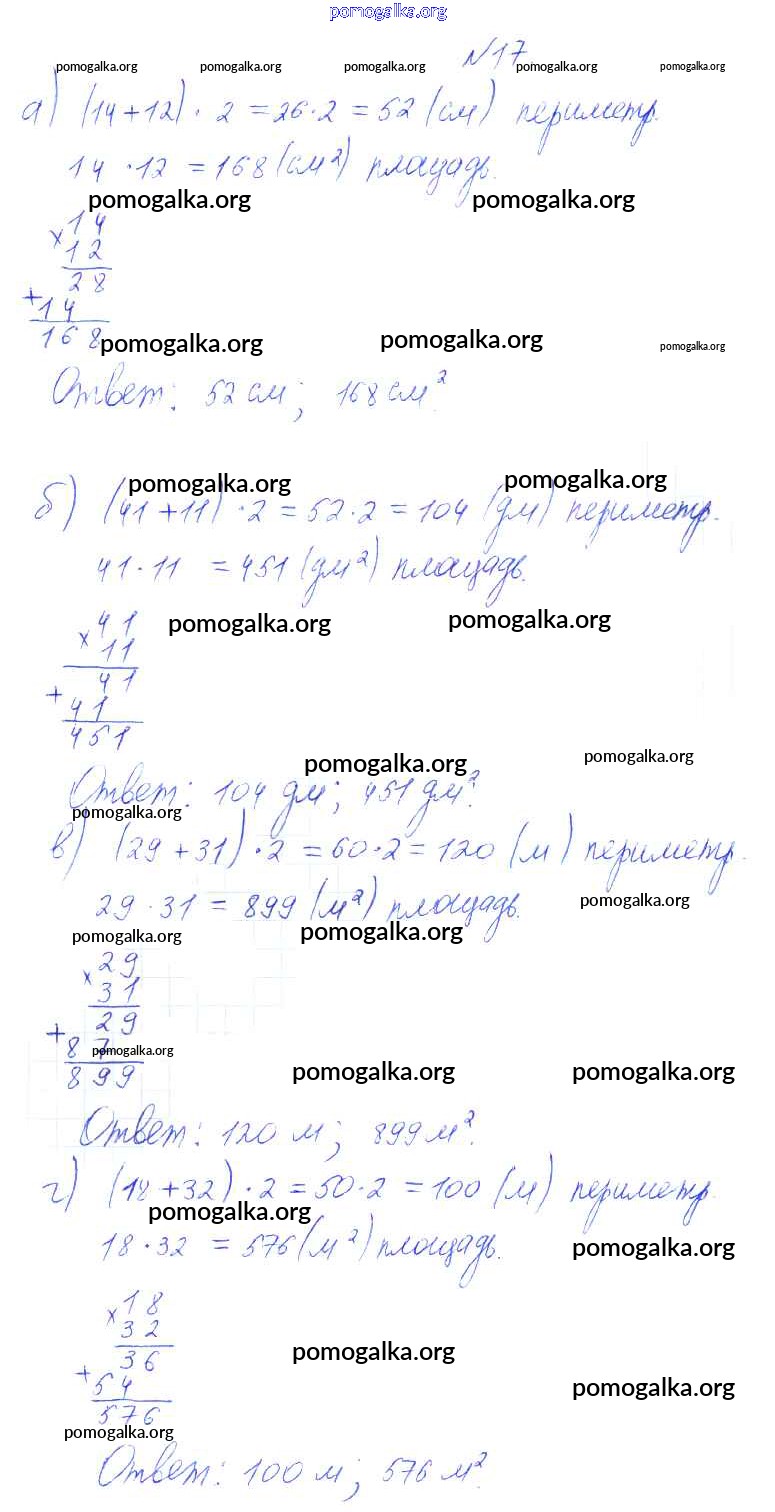 pomogalka.org
№17
pomogalka.org pomogalka.org pomogalka.org pomogalka.org pomogalka.org
а) (14+12) · 2 = 26·2 = 52 (см) периметр.
14 · 12 = 168 (см²) площадь.
pomogalka.org pomogalka.org
× 14
12
28
+ 14
168
pomogalka.org pomogalka.org pomogalka.org
Ответ: 52 см; 168 см².
pomogalka.org pomogalka.org
б) (41 + 11) · 2 = 52 · 2 = 104 (дм) периметр.
41 · 11 = 451 (дм²) площадь.
× 41
pomogalka.org pomogalka.org
11
41
+ 41
451
pomogalka.org pomogalka.org
Ответ: 104 дм; 451 дм².
pomogalka.org
в) (29 + 31) · 2 = 60 · 2 = 120 (м) периметр.
29 · 31 = 899 (м²) площадь.
pomogalka.org
pomogalka.org pomogalka.org
× 29
31
29
+ 87
pomogalka.org
899
pomogalka.org pomogalka.org
Ответ: 120 м; 899 м².
г) (18 + 32) · 2 = 50 · 2 = 100 (м) периметр.
pomogalka.org
18 · 32 = 576 (м²) площадь.
pomogalka.org
× 18
32
36
pomogalka.org
+ 54
pomogalka.org
576
pomogalka.org
Ответ: 100 м; 576 м².